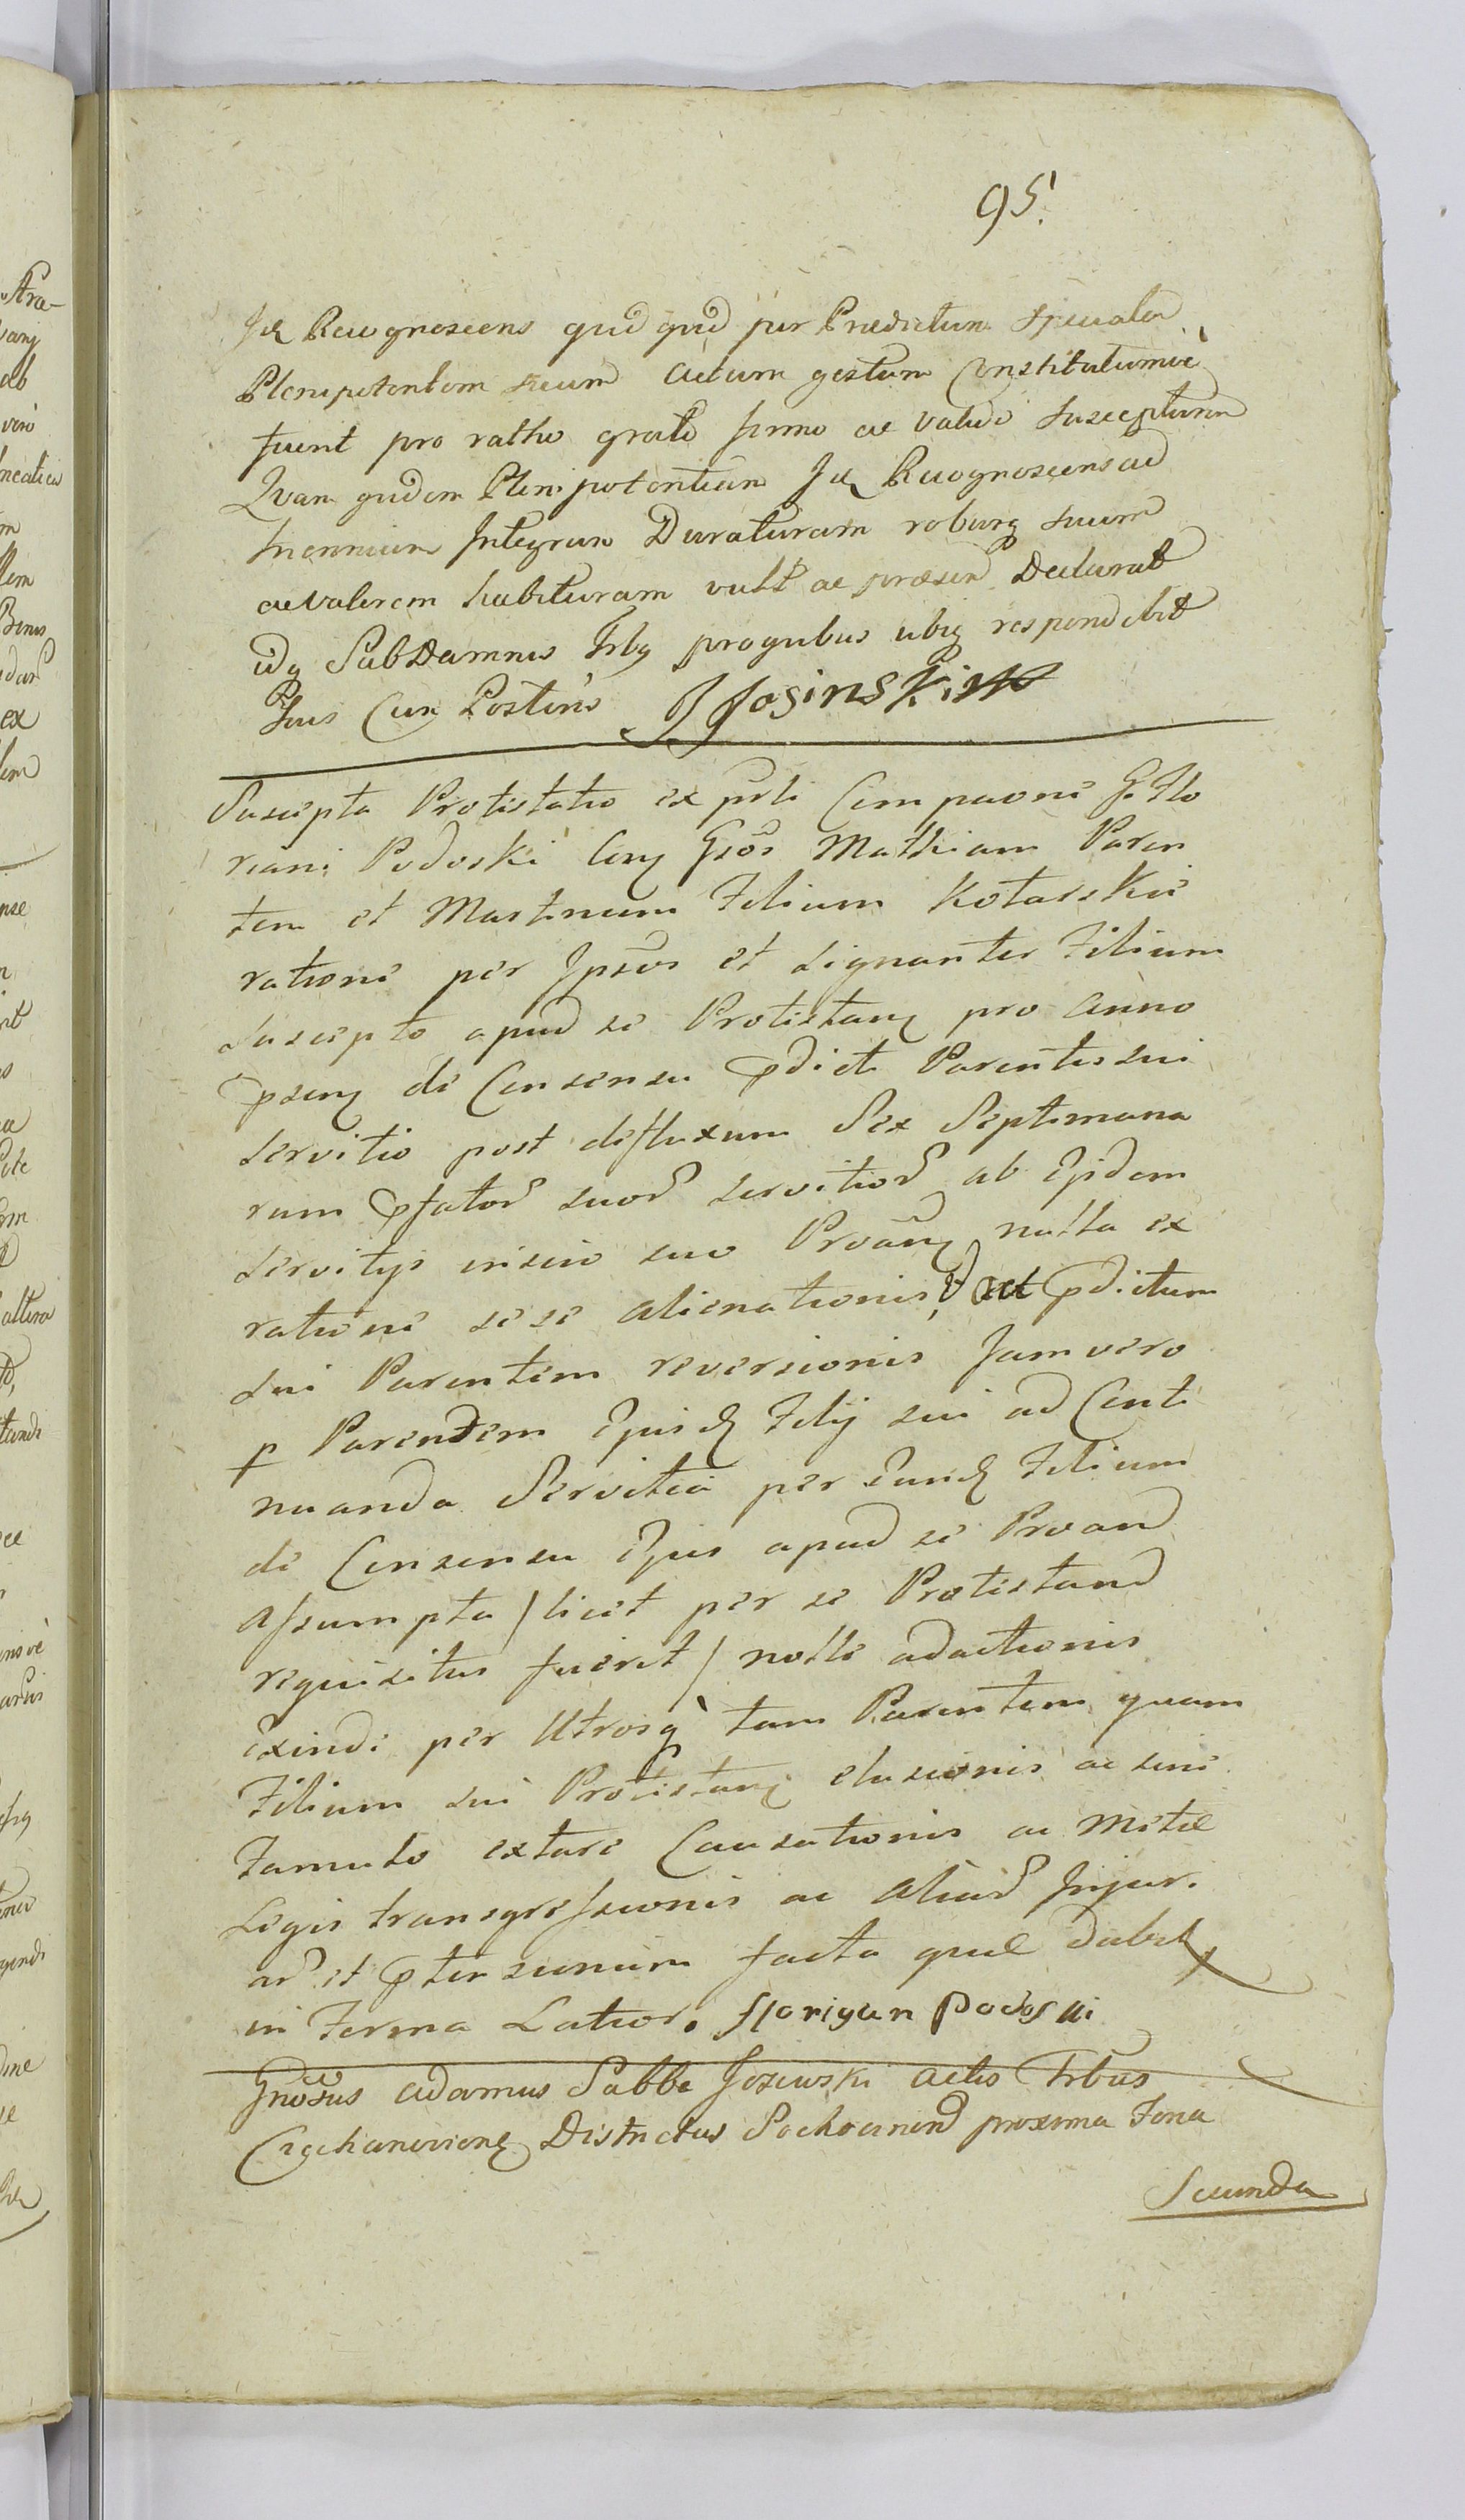 95.
Id Recognoscens quid quid per Praedictum Spcualem
Plenipotentem suum actum gestum Constitutumve
fuerit pro ratho grato firmo ac valido suscepturum
Quam quidem Plenipotentiam Id Recognoscens ad
Triennium Integrum Duraturam roburq suum
ac valorem habituram vult ac praesen Declarat
idq Sub Damnis Trbq pro quibus ubiq respondebit
Tenis Cum Postiris JJosinski
Suscepta Protistatio ex prti Compaone G. Flo
riani Podoski Con Gsos Mathiam Paren
tem et Martinum Filium Kotarskie
ratione per Ipsos et signanter Filium
suscepto apud se Protistan pro Anno
psen de Consensu pdicti Parentis sui
servitio post defluxum Sex Septimana
rum pfator suor servitior ab Ejsdem
servitys inscio suo Proan nulla ex
ratione sese alienationis, ad pdictum
sui Parentem reversionis Jam vero
p Parentem Ejusd Filij sui ad Conti
nuanda Servitia per Eund Filium
de Consensu Ejus apud se Proand
assumpta / licet per se Protistand
requisitus fuerit / nolle adactionis
Exinde per Utrosq tam Parentem quam
Filium sui Protistan elusionis ac sine
Famulo extare Causationis ac Metae
Legis transgressionis ac aliar Injuri
ar et ptensionum facta quae dabit
in Forma Latior. Floriyan Podoski
Gnosus Adamus Sabbe Jozewski Actis Trbus
Ciechanovien Districtus Sochocinen proxima Feria
Secunda
-Stra-
vanj
ab
ex
altera